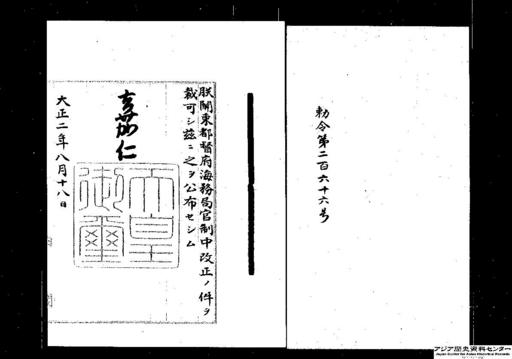 勅令第二百六十六号
朕関東都督府海務局官制中改正ノ件ヲ
裁可シ茲ニ之ヲ公布セシム
嘉仁
天皇御璽
大正二年八月十八日
アジア歴史資料センター
Japan Center for Asian Historical Records